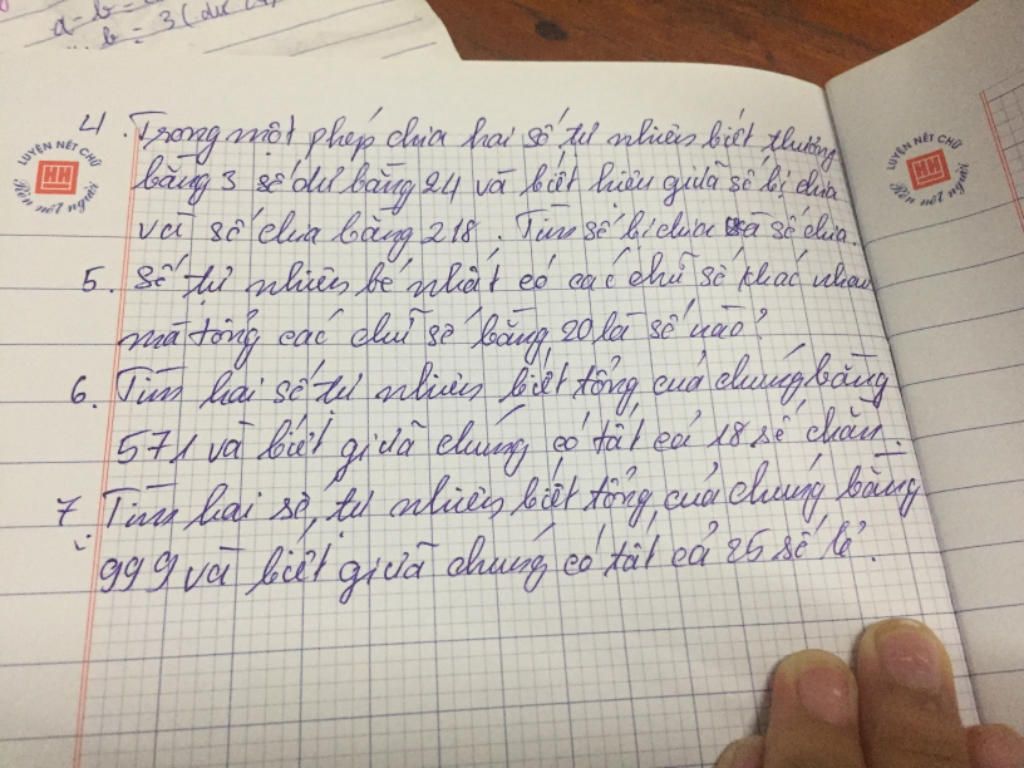 a - b =
b = 3 (dư
4. Trong một phép chia hai số tự nhiên biết thương
bằng 3 số dư bằng 24 và biết hiệu giữa số bị chia
và số chia bằng 218. Tìm số bị chia và số chia.
5. Số tự nhiên bé nhất có các chữ số khác nhau
mà tổng các chữ số bằng 20 là số nào?
6. Tìm hai số tự nhiên biết tổng của chúng bằng
571 và biết giữa chúng có tất cả 18 số chẵn.
7 Tìm hai số tự nhiên biết tổng của chúng bằng
999 và biết giữa chúng có tất cả 25 số lẻ.
LUYỆN NÉT CHỮ
HH
Rèn nết người
LUYỆN NÉT CHỮ
HH
Rèn nết người